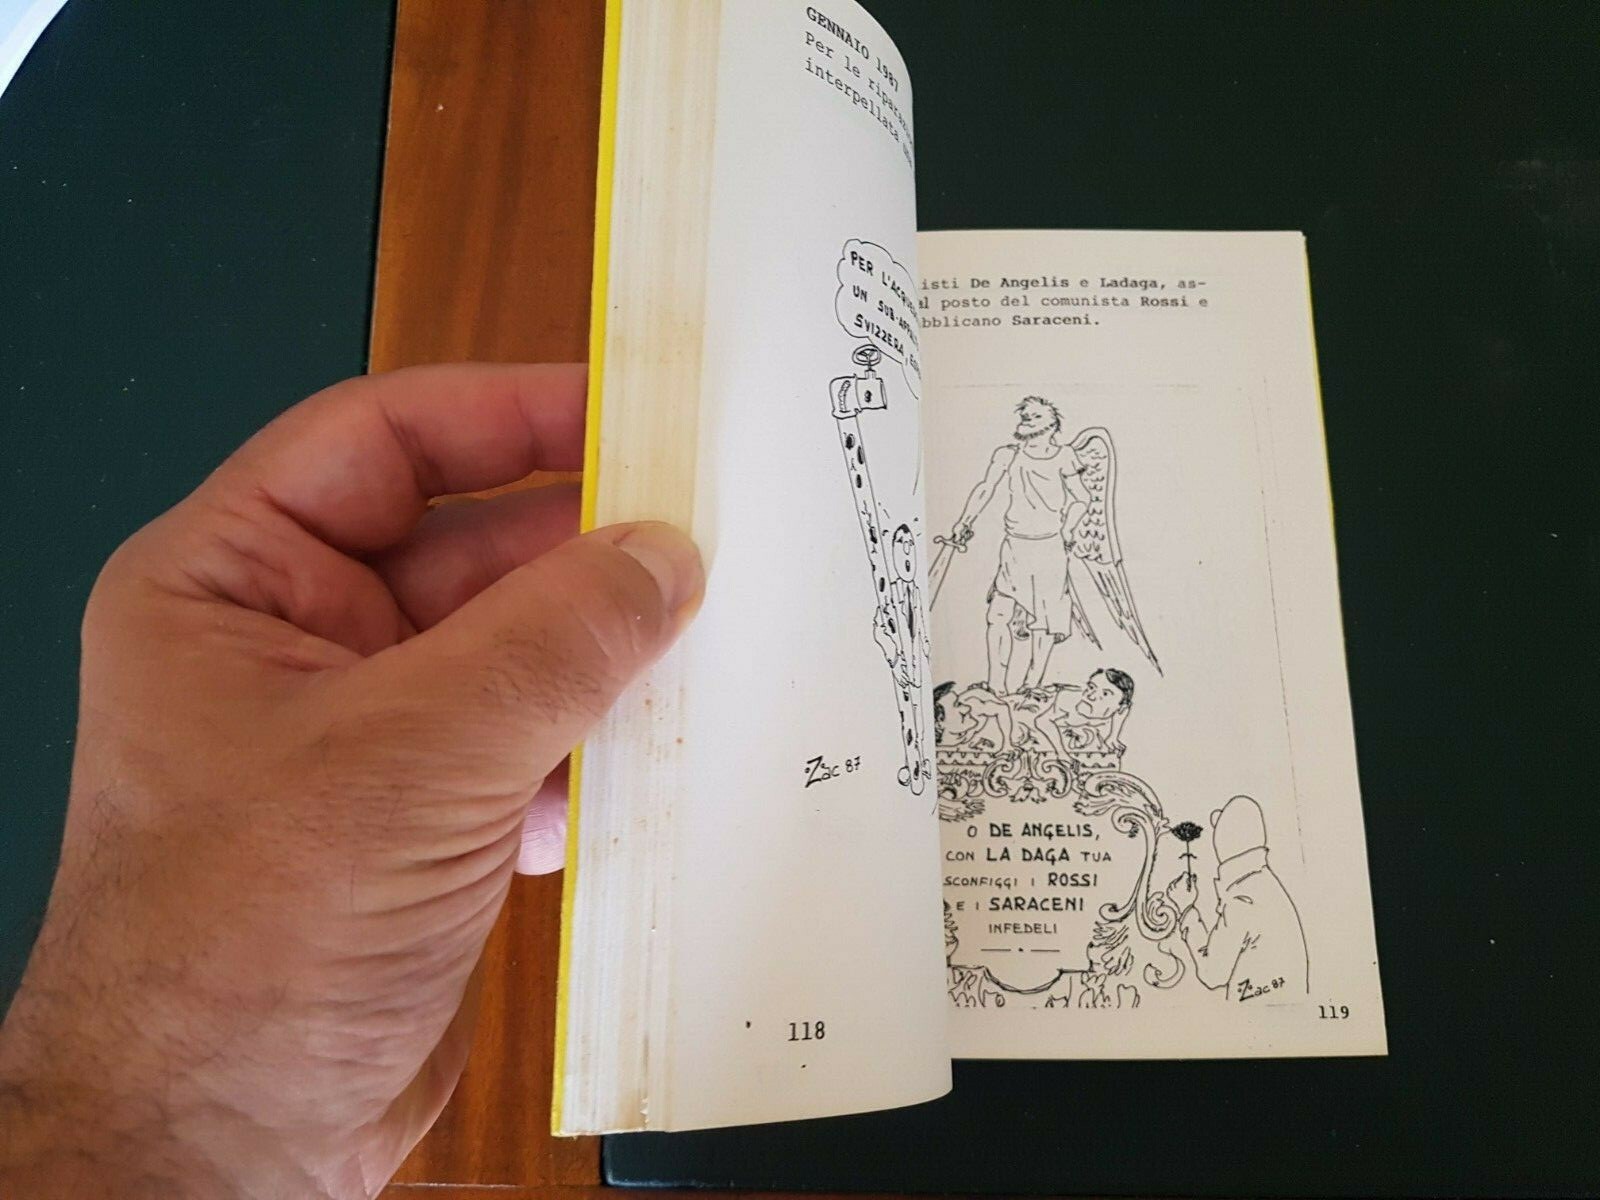 GENNAIO 1987
Per le riparazioni
interpellata una
PER L'ACQUEDOTTO
UN SUB-APPALTO
SVIZZERA,
Zac 87
118
isti De Angelis e Ladaga, as-
al posto del comunista Rossi e
bblicano Saraceni.
O DE ANGELIS,
CON LA DAGA TUA
SCONFIGGI I ROSSI
E I SARACENI
INFEDELI
Zac 87
119